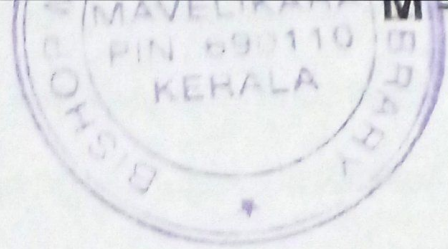 MAVELIKARA
PIN 690110
KERALA
BISHOP
BRARY
M